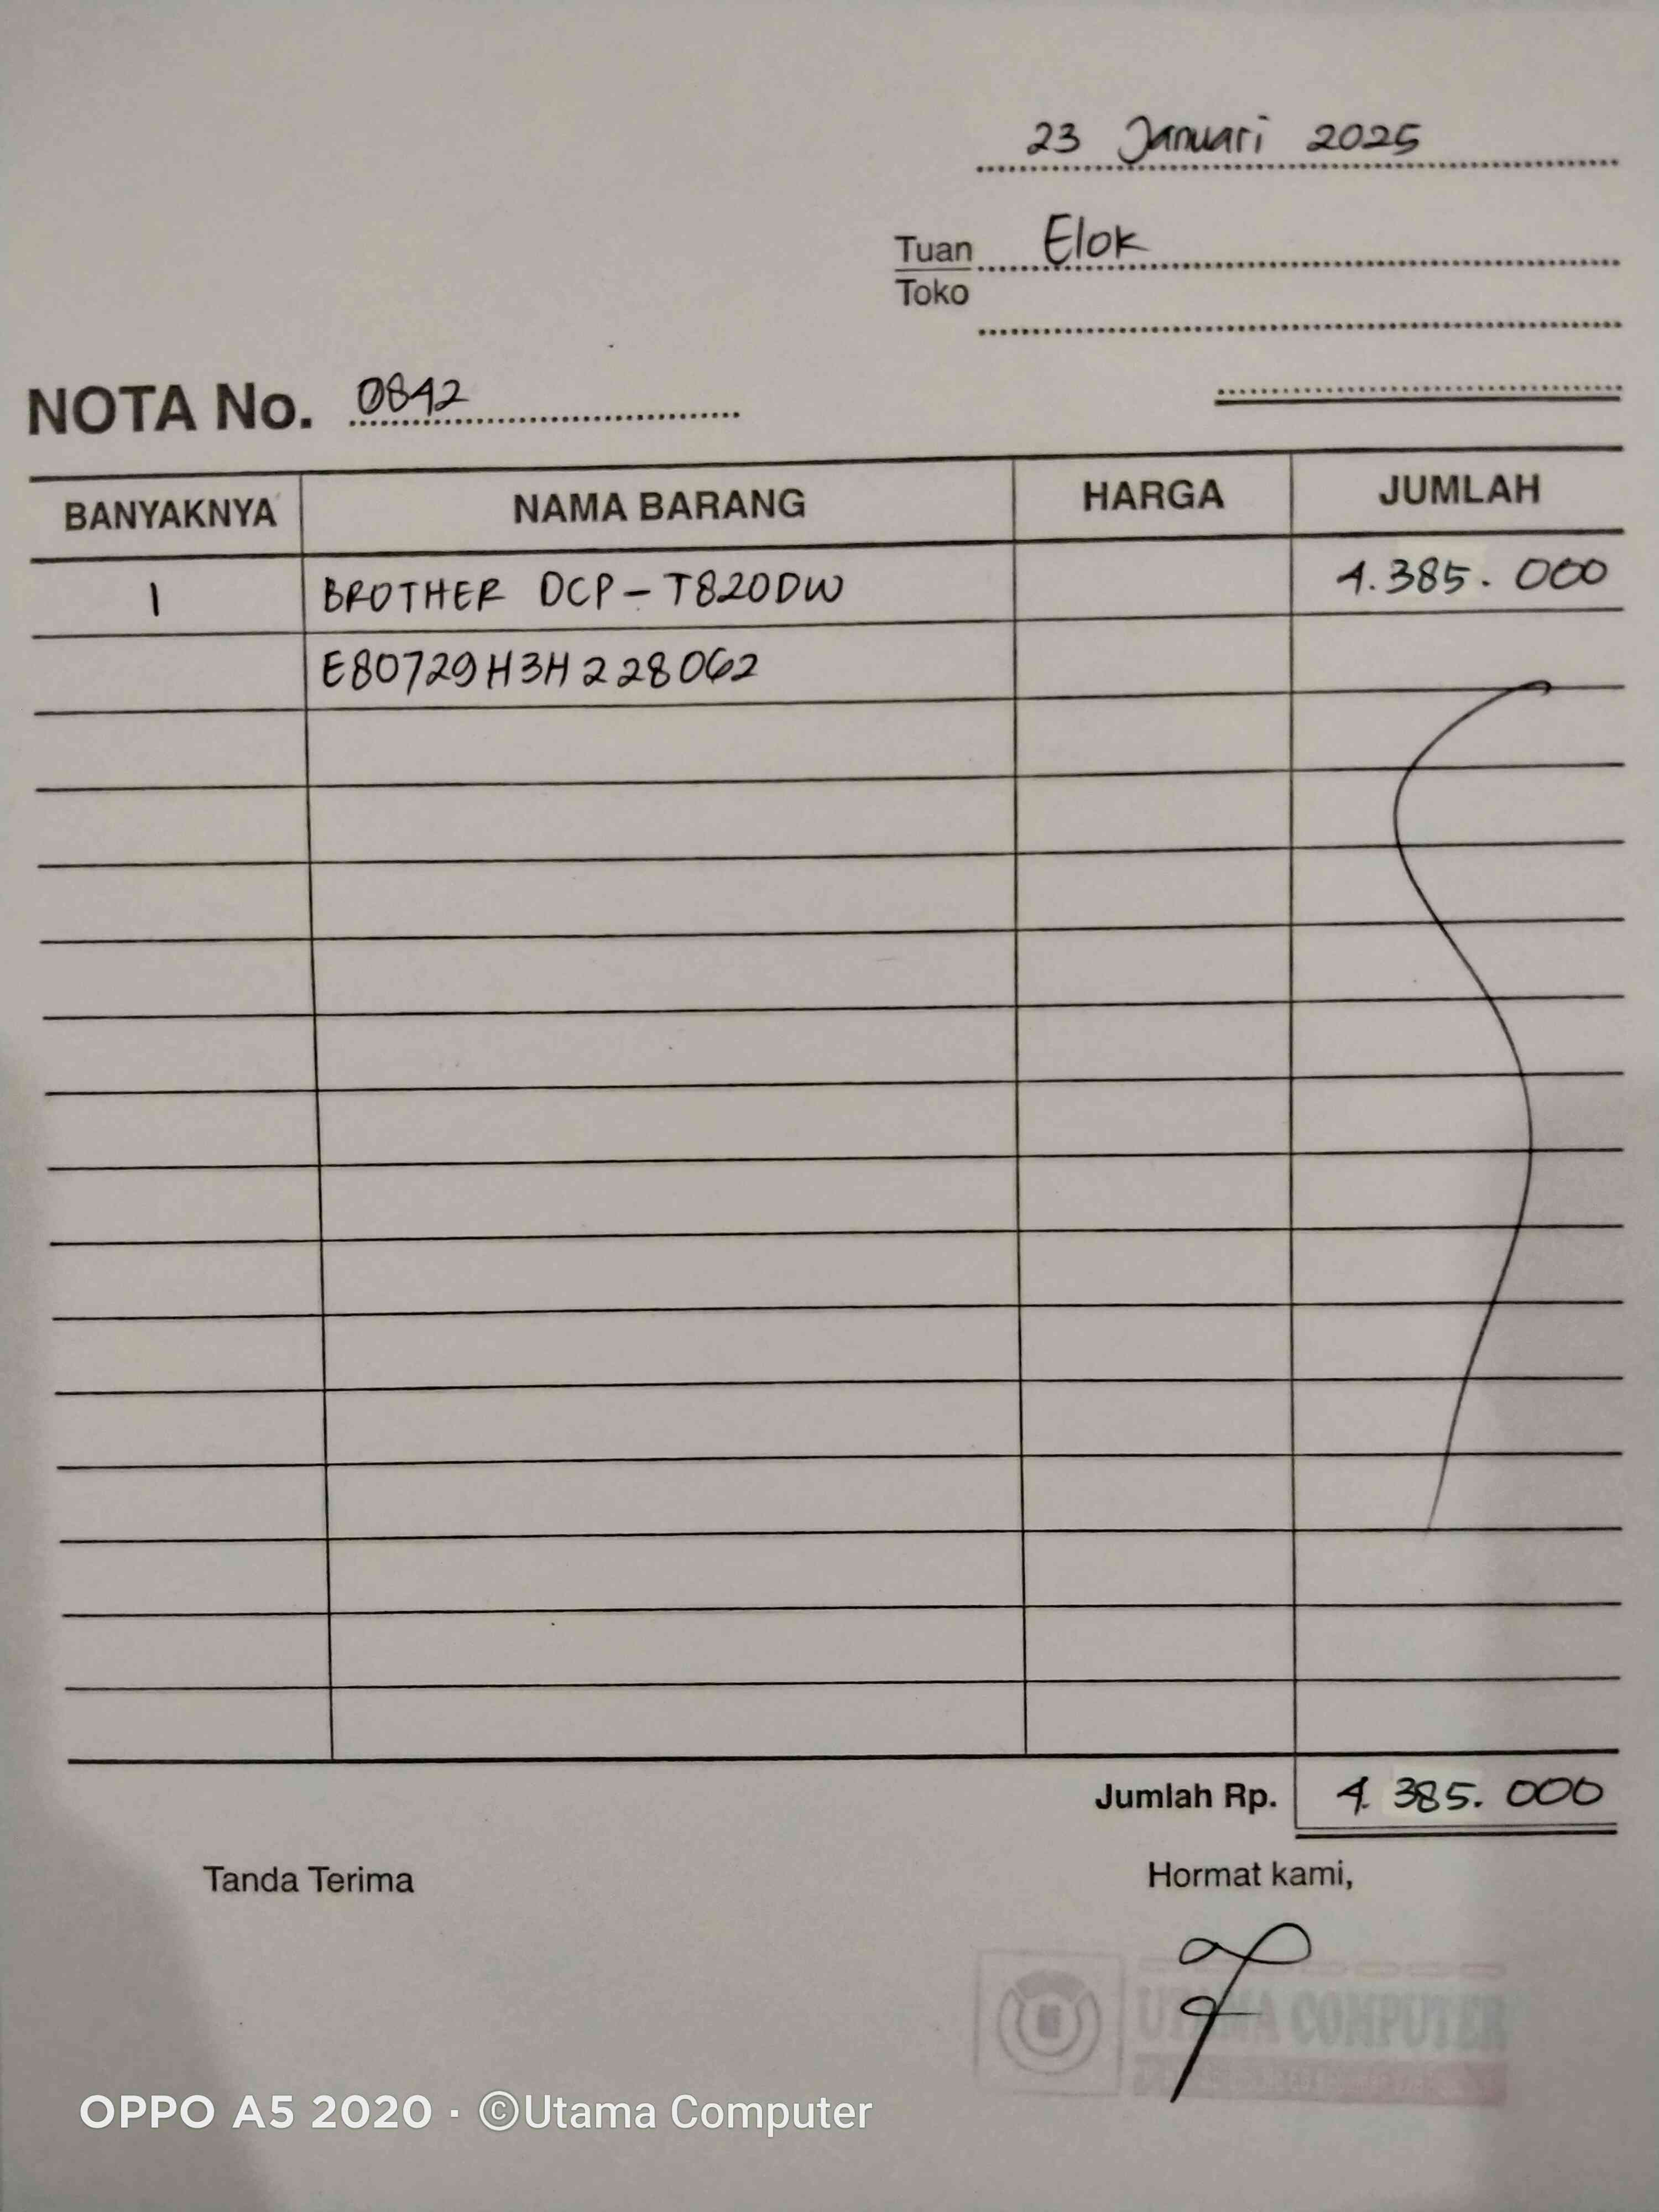 23 Januari 2025
Tuan Elok
Toko
NOTA No. 0842
BANYAKNYA NAMA BARANG HARGA JUMLAH
1 BROTHER DCP-T820DW 4.385.000
E80729H3H228062
Jumlah Rp. 4.385.000
Tanda Terima Hormat kami,
UTAMA COMPUTER
OPPO A5 2020 · ©Utama Computer